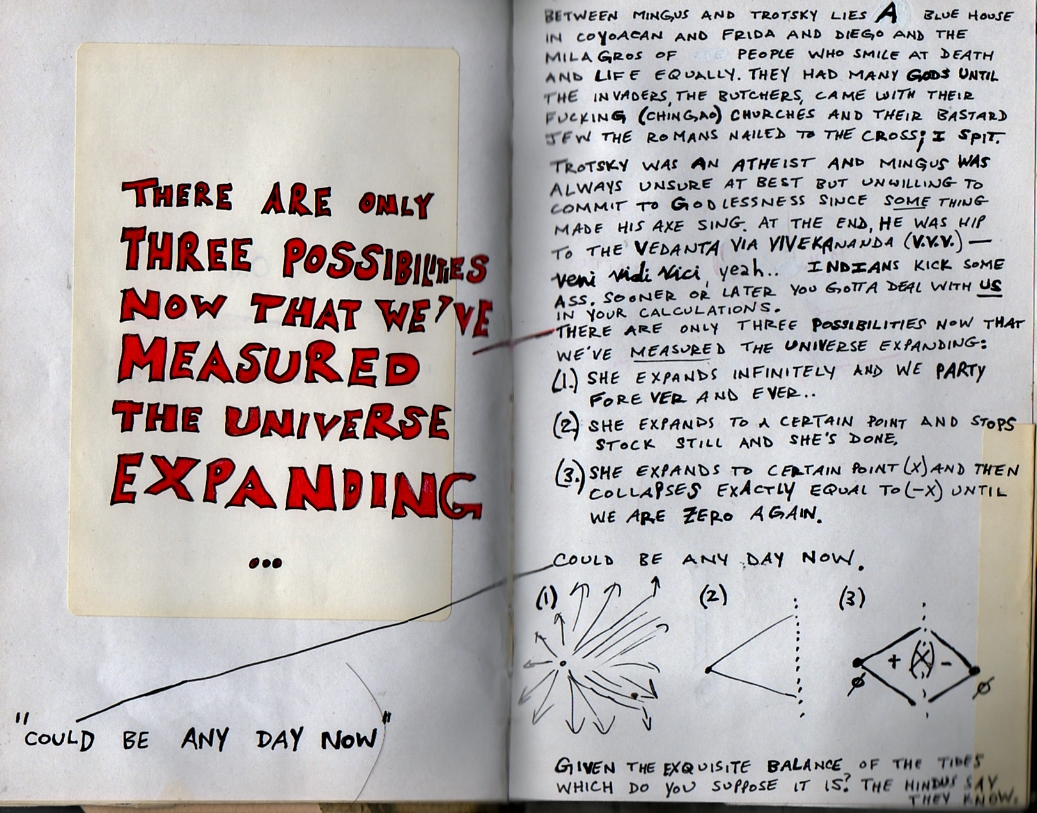 THERE ARE ONLY
THREE POSSIBILITIES
NOW THAT WE'VE
MEASURED
THE UNIVERSE
EXPANDING
...
"COULD BE ANY DAY NOW"
BETWEEN MINGUS AND TROTSKY LIES A BLUE HOUSE
IN COYOACAN AND FRIDA AND DIEGO AND THE
MILAGROS OF PEOPLE WHO SMILE AT DEATH
AND LIFE EQUALLY. THEY HAD MANY GODS UNTIL
THE INVADERS, THE BUTCHERS, CAME WITH THEIR
FUCKING (CHINGAO) CHURCHES AND THEIR BASTARD
JEW THE ROMANS NAILED TO THE CROSS; I SPIT.
TROTSKY WAS AN ATHEIST AND MINGUS WAS
ALWAYS UNSURE AT BEST BUT UNWILLING TO
COMMIT TO GODLESSNESS SINCE SOME THING
MADE HIS AXE SING. AT THE END, HE WAS HIP
TO THE VEDANTA VIA VIVEKANANDA (V.V.V.) —
veni vidi vici, yeah.. INDIANS KICK SOME
ASS. SOONER OR LATER YOU GOTTA DEAL WITH US
IN YOUR CALCULATIONS.
THERE ARE ONLY THREE POSSIBILITIES NOW THAT
WE'VE MEASURED THE UNIVERSE EXPANDING:
(1.) SHE EXPANDS INFINITELY AND WE PARTY
FOREVER AND EVER..
(2.) SHE EXPANDS TO A CERTAIN POINT AND STOPS
STOCK STILL AND SHE'S DONE.
(3.) SHE EXPANDS TO CERTAIN POINT (X) AND THEN
COLLAPSES EXACTLY EQUAL TO (-X) UNTIL
WE ARE ZERO AGAIN.
COULD BE ANY DAY NOW.
(1) (2) (3)
+ (X) -
ø ø
GIVEN THE EXQUISITE BALANCE OF THE TIDES
WHICH DO YOU SUPPOSE IT IS? THE HINDUS SAY
THEY KNOW.